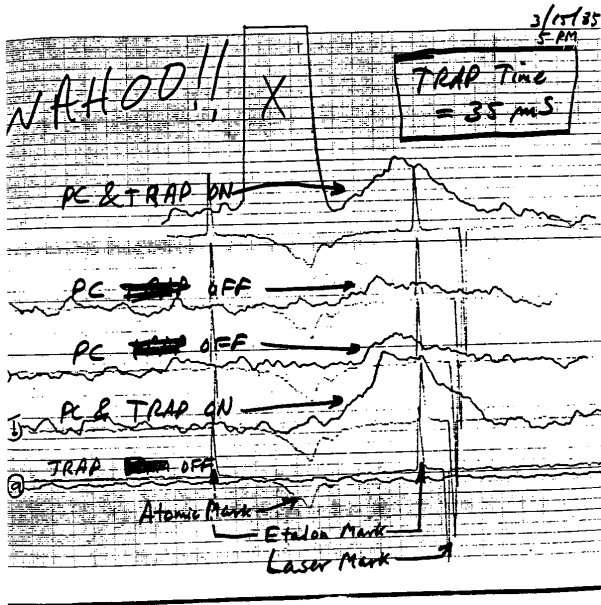 3/15/85
5 PM
WAHOO!!
X
TRAP Time
= 35 mS
PC & TRAP ON
PC OFF
PC OFF
b
PC & TRAP ON
TRAP OFF
a
Atomic Mark
Etalon Mark
Laser Mark